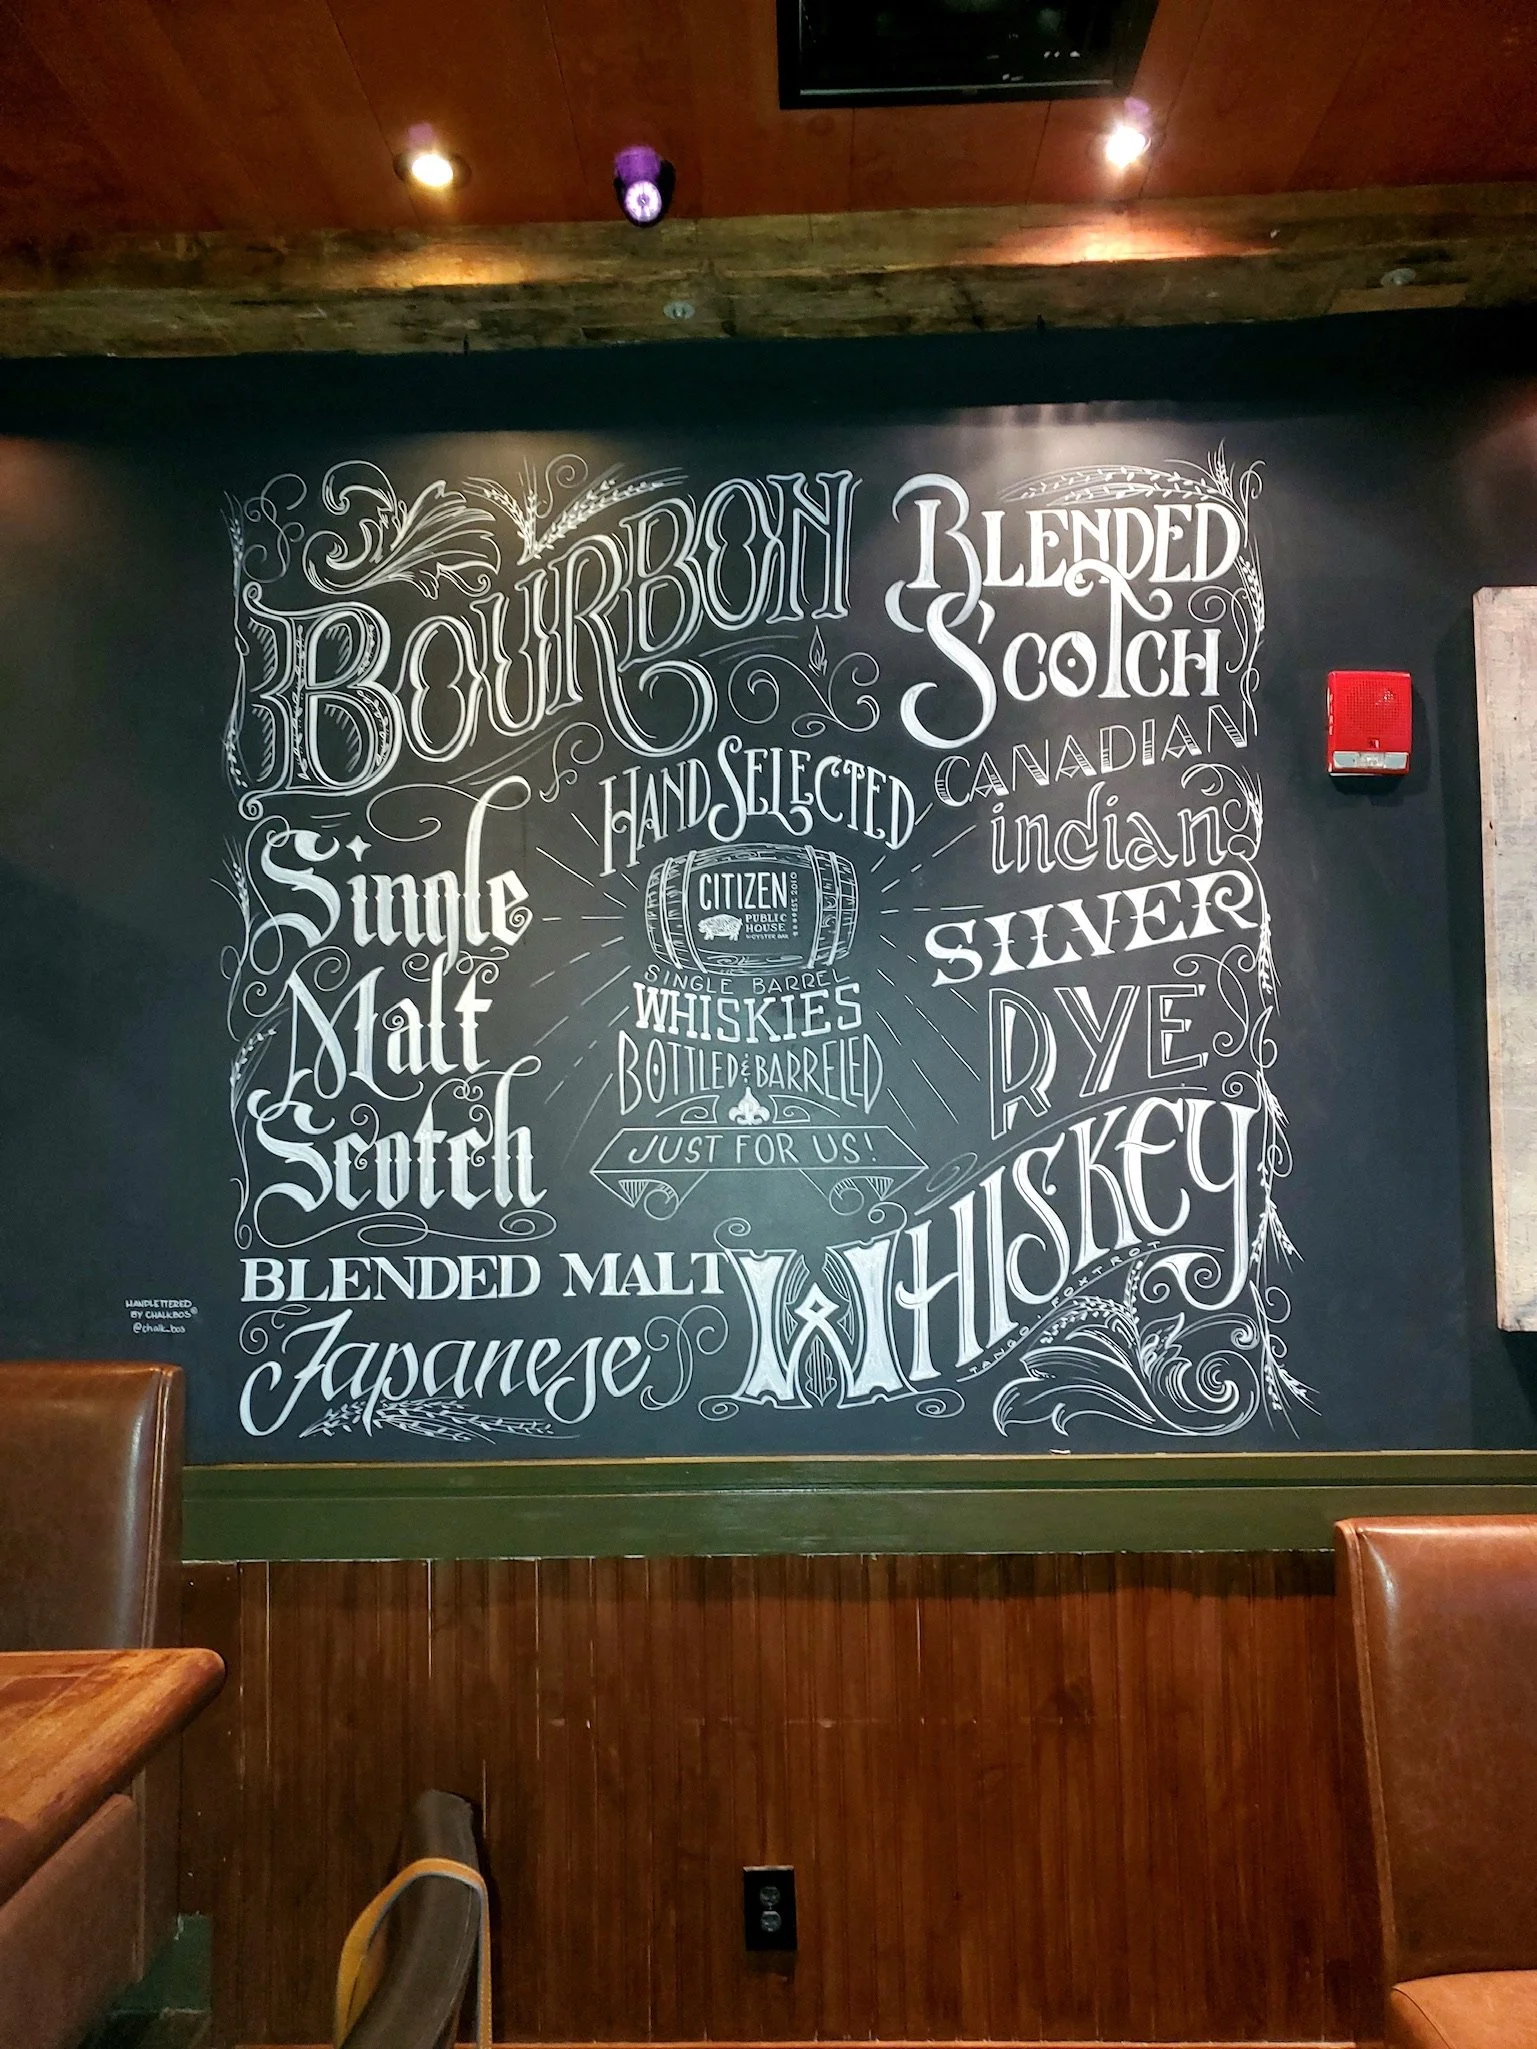 BOURBON
BLENDED
SCOTCH
CANADIAN
indian
SILVER
RYE
WHISKEY
TANGO FOXTROT
HAND SELECTED
CITIZEN
PUBLIC
HOUSE
& OYSTER BAR
EST. 2010
SINGLE BARREL
WHISKIES
BOTTLED & BARRELED
JUST FOR US!
Single
Malt
Scotch
BLENDED MALT
Japanese
HANDLETTERED
BY CHALKBOS©
@chalk_bos